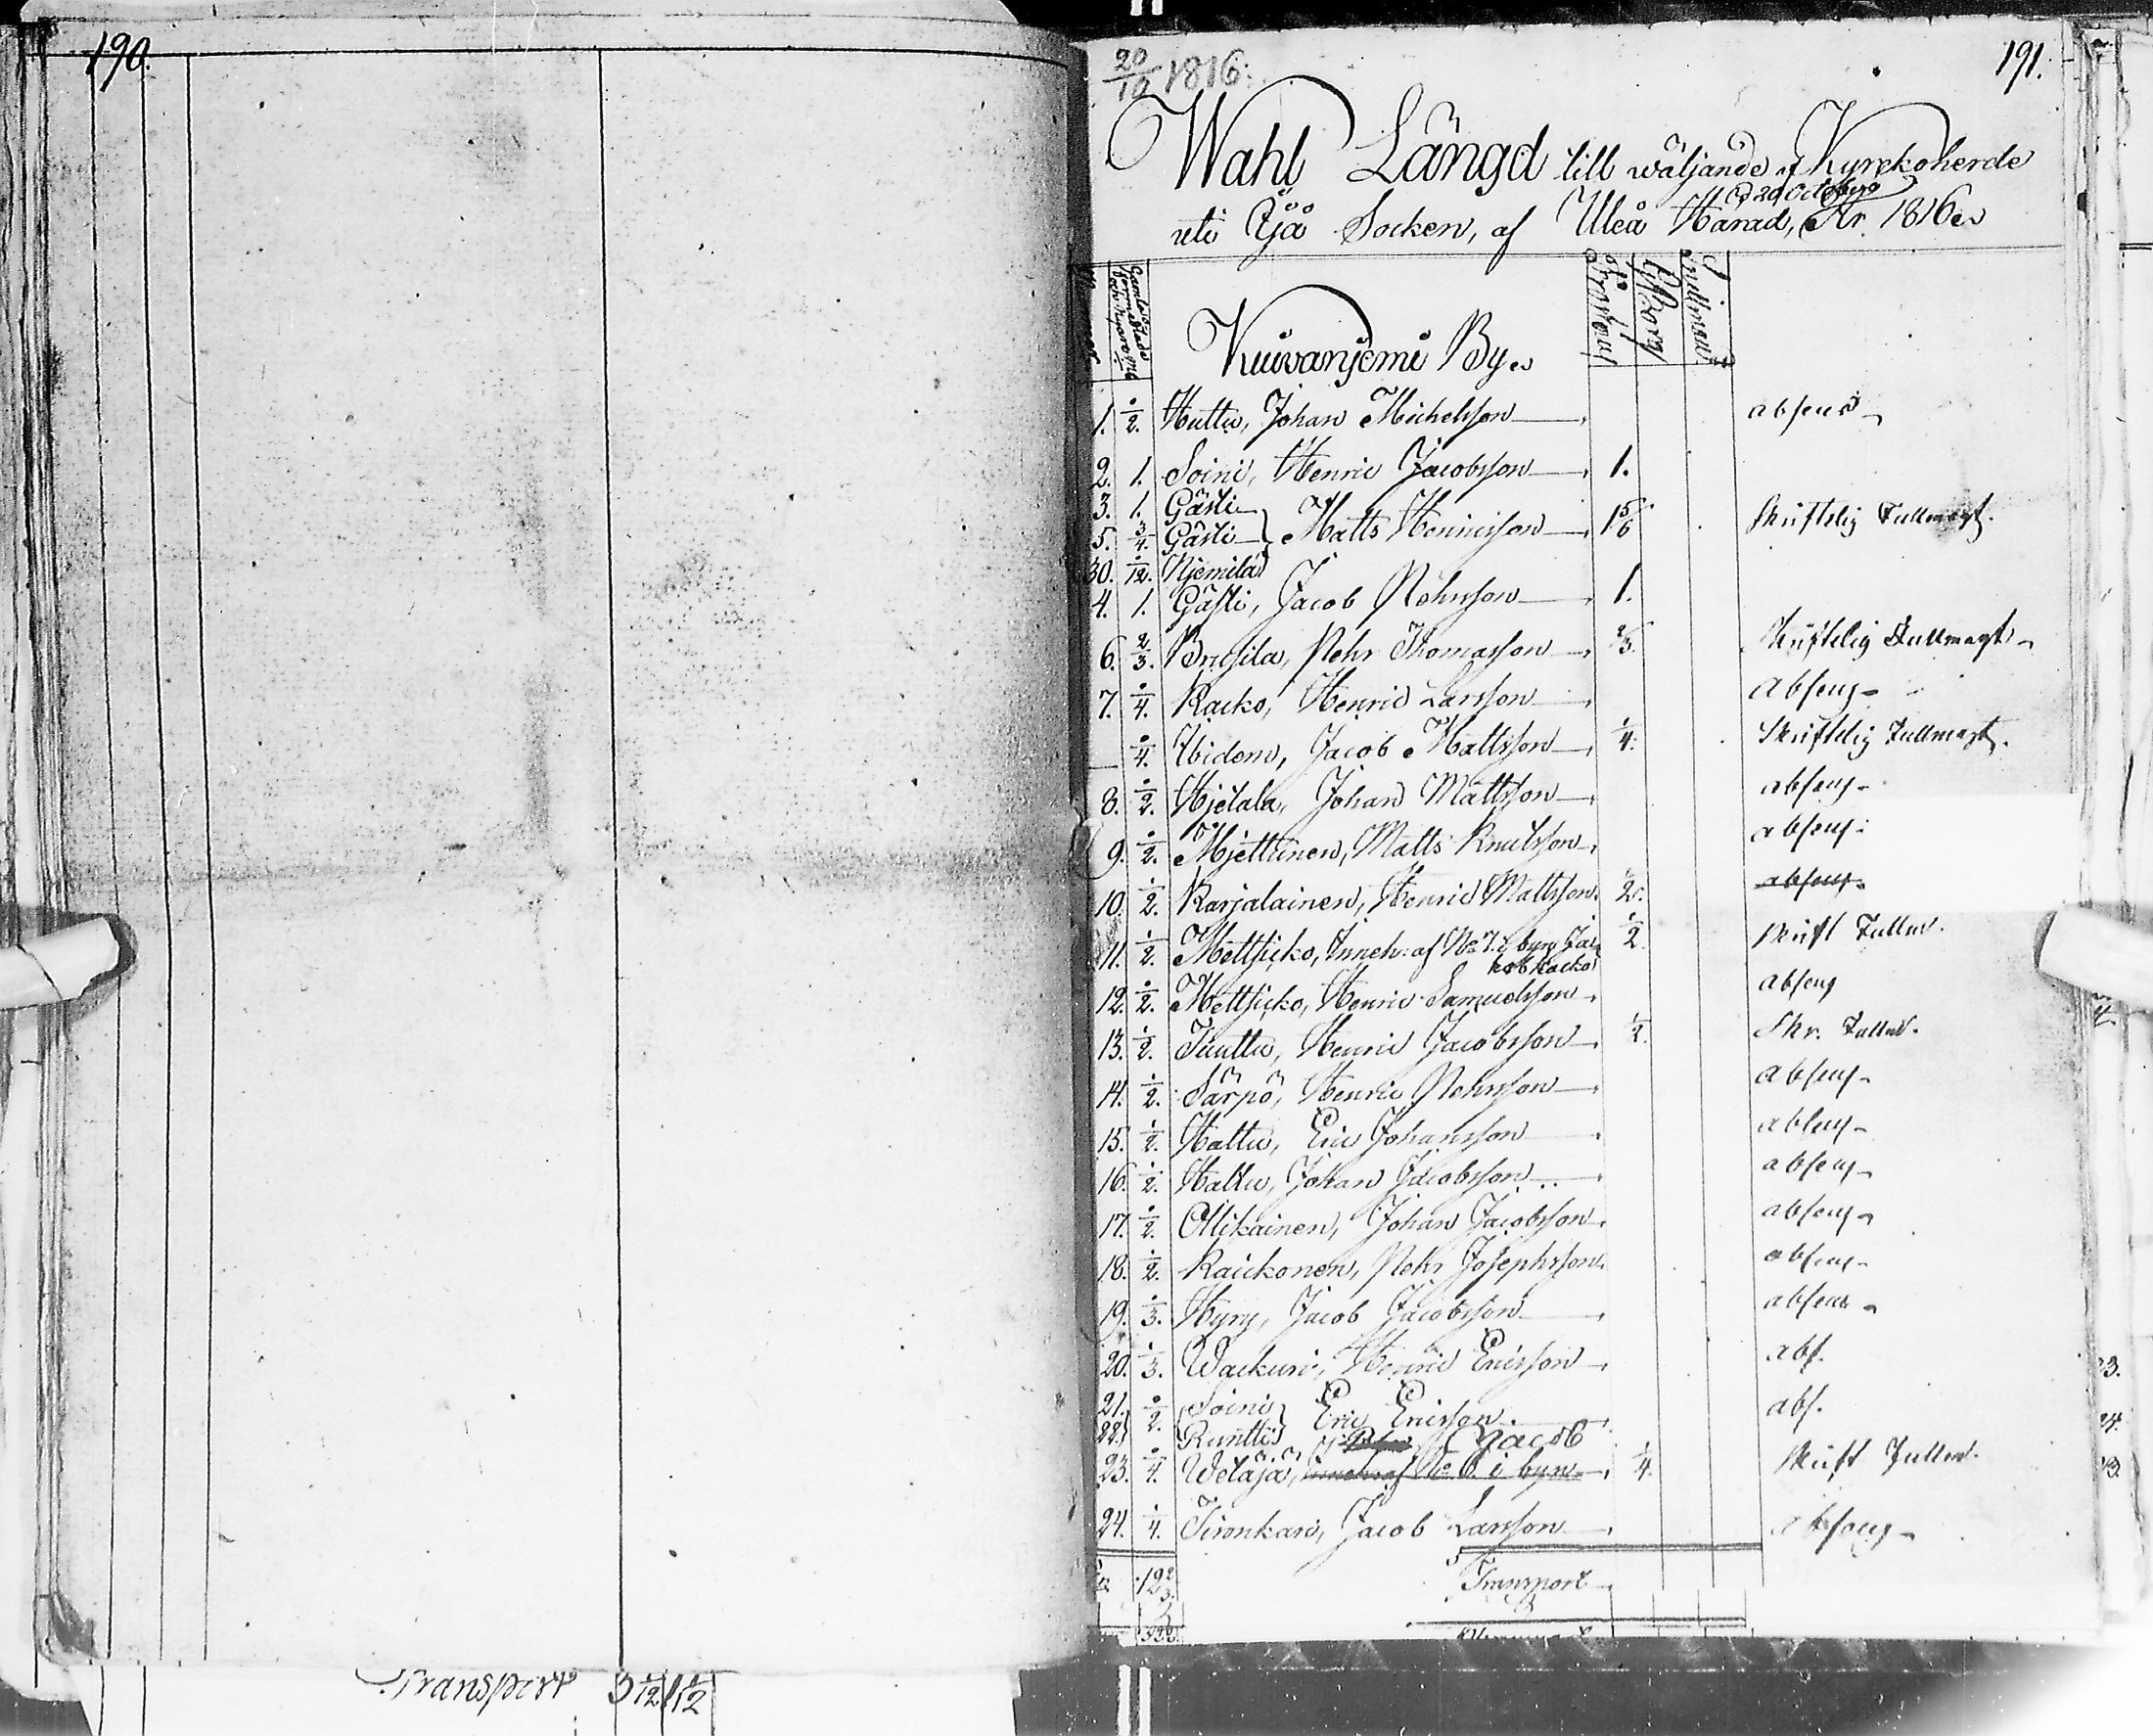 190.
Transport 3 1/12 1 1/12
20/10 1816:
191.
Wahl Längd till wäljande af Kyrckoherde
d. 20 Octobr
uti Ijå Socken, af Uleå Härad, År 1816.
Kuivanjemi By.
1. 1/2. Huttu, Johan Michelsson absens
2. 1. Soini, Henric Jacobsson 1.
3. 1. Gästi
5. 3/4. Gästi Matts Henricsson 1 5/6 Skriftelig Fullmagt.
30. 1/12. Njemilä
4. 1. Gästi, Jacob Pehrsson 1.
6. 2/3. Brusila, Pehr Thomasson 2/3. Skriftelig Fullmagt
7. 1/4. Racko, Henric Larsson Absens
1/4. Ibidem, Jacob Mattsson 1/4. Skriftelig Fullmagt.
8. 1/2. Hjetala, Johan Mattsson absens
9. 1/2. Mjettinen, Matts Knutsson absens
10. 1/2. Karjalainen, Henric Mattsson. 1/2. absens
11. 1/2. Mettsicko, Inneh: af No 7. i byn Ja= 1/2. Skrift Fullm.
kob Racko
12. 1/2. Mettsicko, Henric Samuelsson absens
13. 1/2. Tuuttu, Henric Jacobsson 1/2. Skr. Fullm.
14. 1/2. Särpö, Henric Pehrsson absens
15. 1/2. Hattu, Eric Johansson absens
16. 1/2. Hattu, Johan Jacobsson absens
17. 1/2. Ollikainen, Johan Jacobsson absens
18. 1/2. Raickonen, Pehr Josephsson absens
19. 1/3. Hyry, Jacob Jacobsson absens
20. 1/3. Wackuri, Henric Ericsson abs.
21. 1/2. Soini Eric Ericsson. abs.
22. Runtti
Jacob
23. 1/4. Wetäjä, Inneh: af No 6. i byn 1/4. Skrift Fullm.
24. 1/4. Tironkari, Jacob Larsson absens
Transport